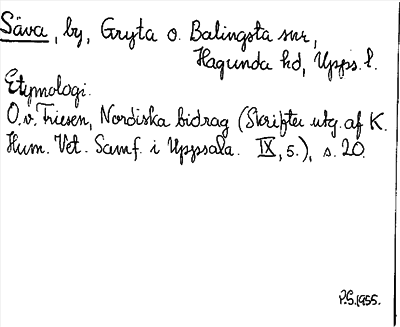 Säva, by, Gryta o. Balingsta snr,
Hagunda hd, Upps. l.
Etymologi.
O. v. Friesen, Nordiska bidrag (Skrifter utg. af K.
Hum. Vet. Samf. i Uppsala. IX, 5.), s. 20.
P.S. 1955.